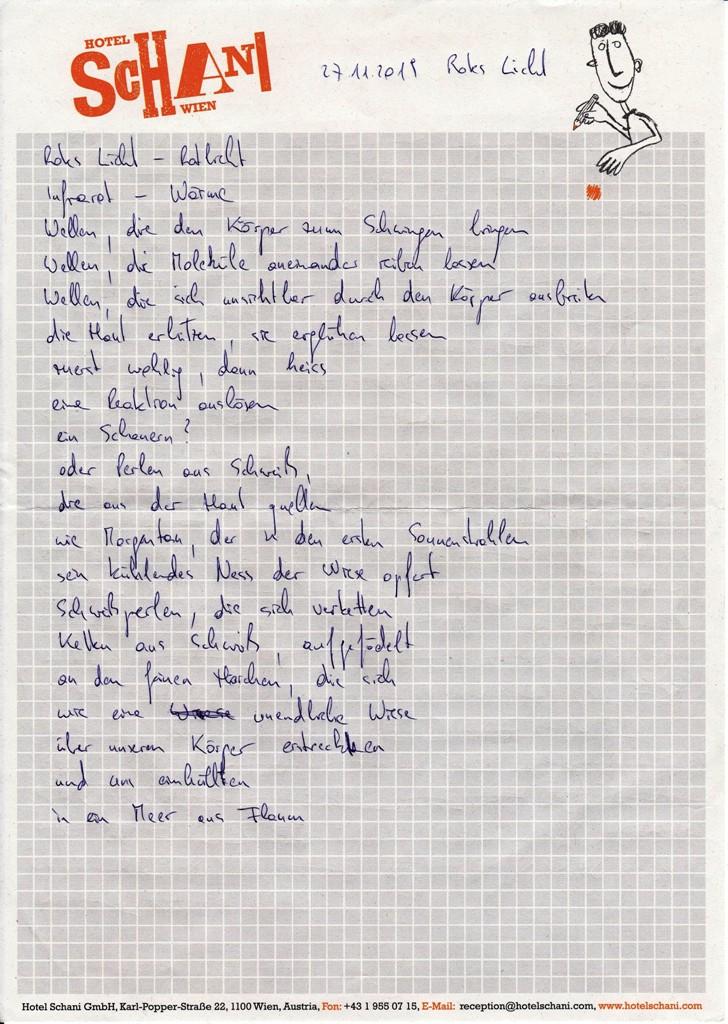 HOTEL
SCHANI
WIEN
27.11.2019 Rotes Licht
Rotes Licht – Rotlicht
Infrarot – Wärme
Wellen, die den Körper zum Schwingen bringen
Wellen, die Moleküle aneinander reiben lassen
Wellen, die sich unsichtbar durch den Körper ausbreiten
die Haut erhitzen, sie erglühen lassen
zuerst wohlig, dann heiss
eine Reaktion auslösen
ein Schauern?
oder Perlen aus Schweiß,
die aus der Haut quellen
wie Morgentau, der in den ersten Sonnenstrahlen
sein kühlendes Nass der Wiese opfert
Schweißperlen, die sich verketten
Ketten aus Schweiß, aufgefädelt
an den feinen Härchen, die sich
wie eine unendliche Wiese
über unseren Körper erstrecken
und uns einhüllen
in ein Meer aus Flaum
Hotel Schani GmbH, Karl-Popper-Straße 22, 1100 Wien, Austria, Fon: +43 1 955 07 15, E-Mail: reception@hotelschani.com, www.hotelschani.com